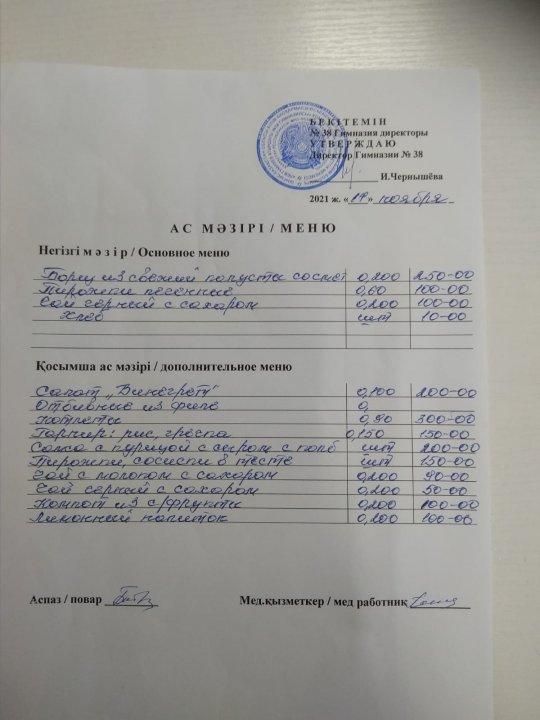 БЕКІТЕМІН
№ 38 Гимназия директоры
УТВЕРЖДАЮ
Директор Гимназии № 38
И.Чернышёва
2021 ж. «19» ноября
АС МӘЗІРІ / МЕНЮ
Негізгі мәзір / Основное меню
Борщ из свежий капусты со смет 0,200 250-00
Пирожки печенные 0,60 100-00
Чай черный с сахаром 0,200 100-00
Хлеб шт 10-00
Қосымша ас мәзірі / дополнительное меню
Салат „Винегрет" 0,100 200-00
Отбивные из филе 0,
Котлеты 0,90 300-00
Гарнир: рис, греча 0,150 150-00
с курицой с сыром с колб шт 200-00
Пирожки, сосиски в тесте шт 150-00
Чай с молоком с сахаром 0,200 90-00
Чай черный с сахаром 0,200 50-00
Компот из с/фрукты 0,200 100-00
Лимонный напиток 0,200 100-00
Аспаз / повар
Мед.қызметкер / мед работник